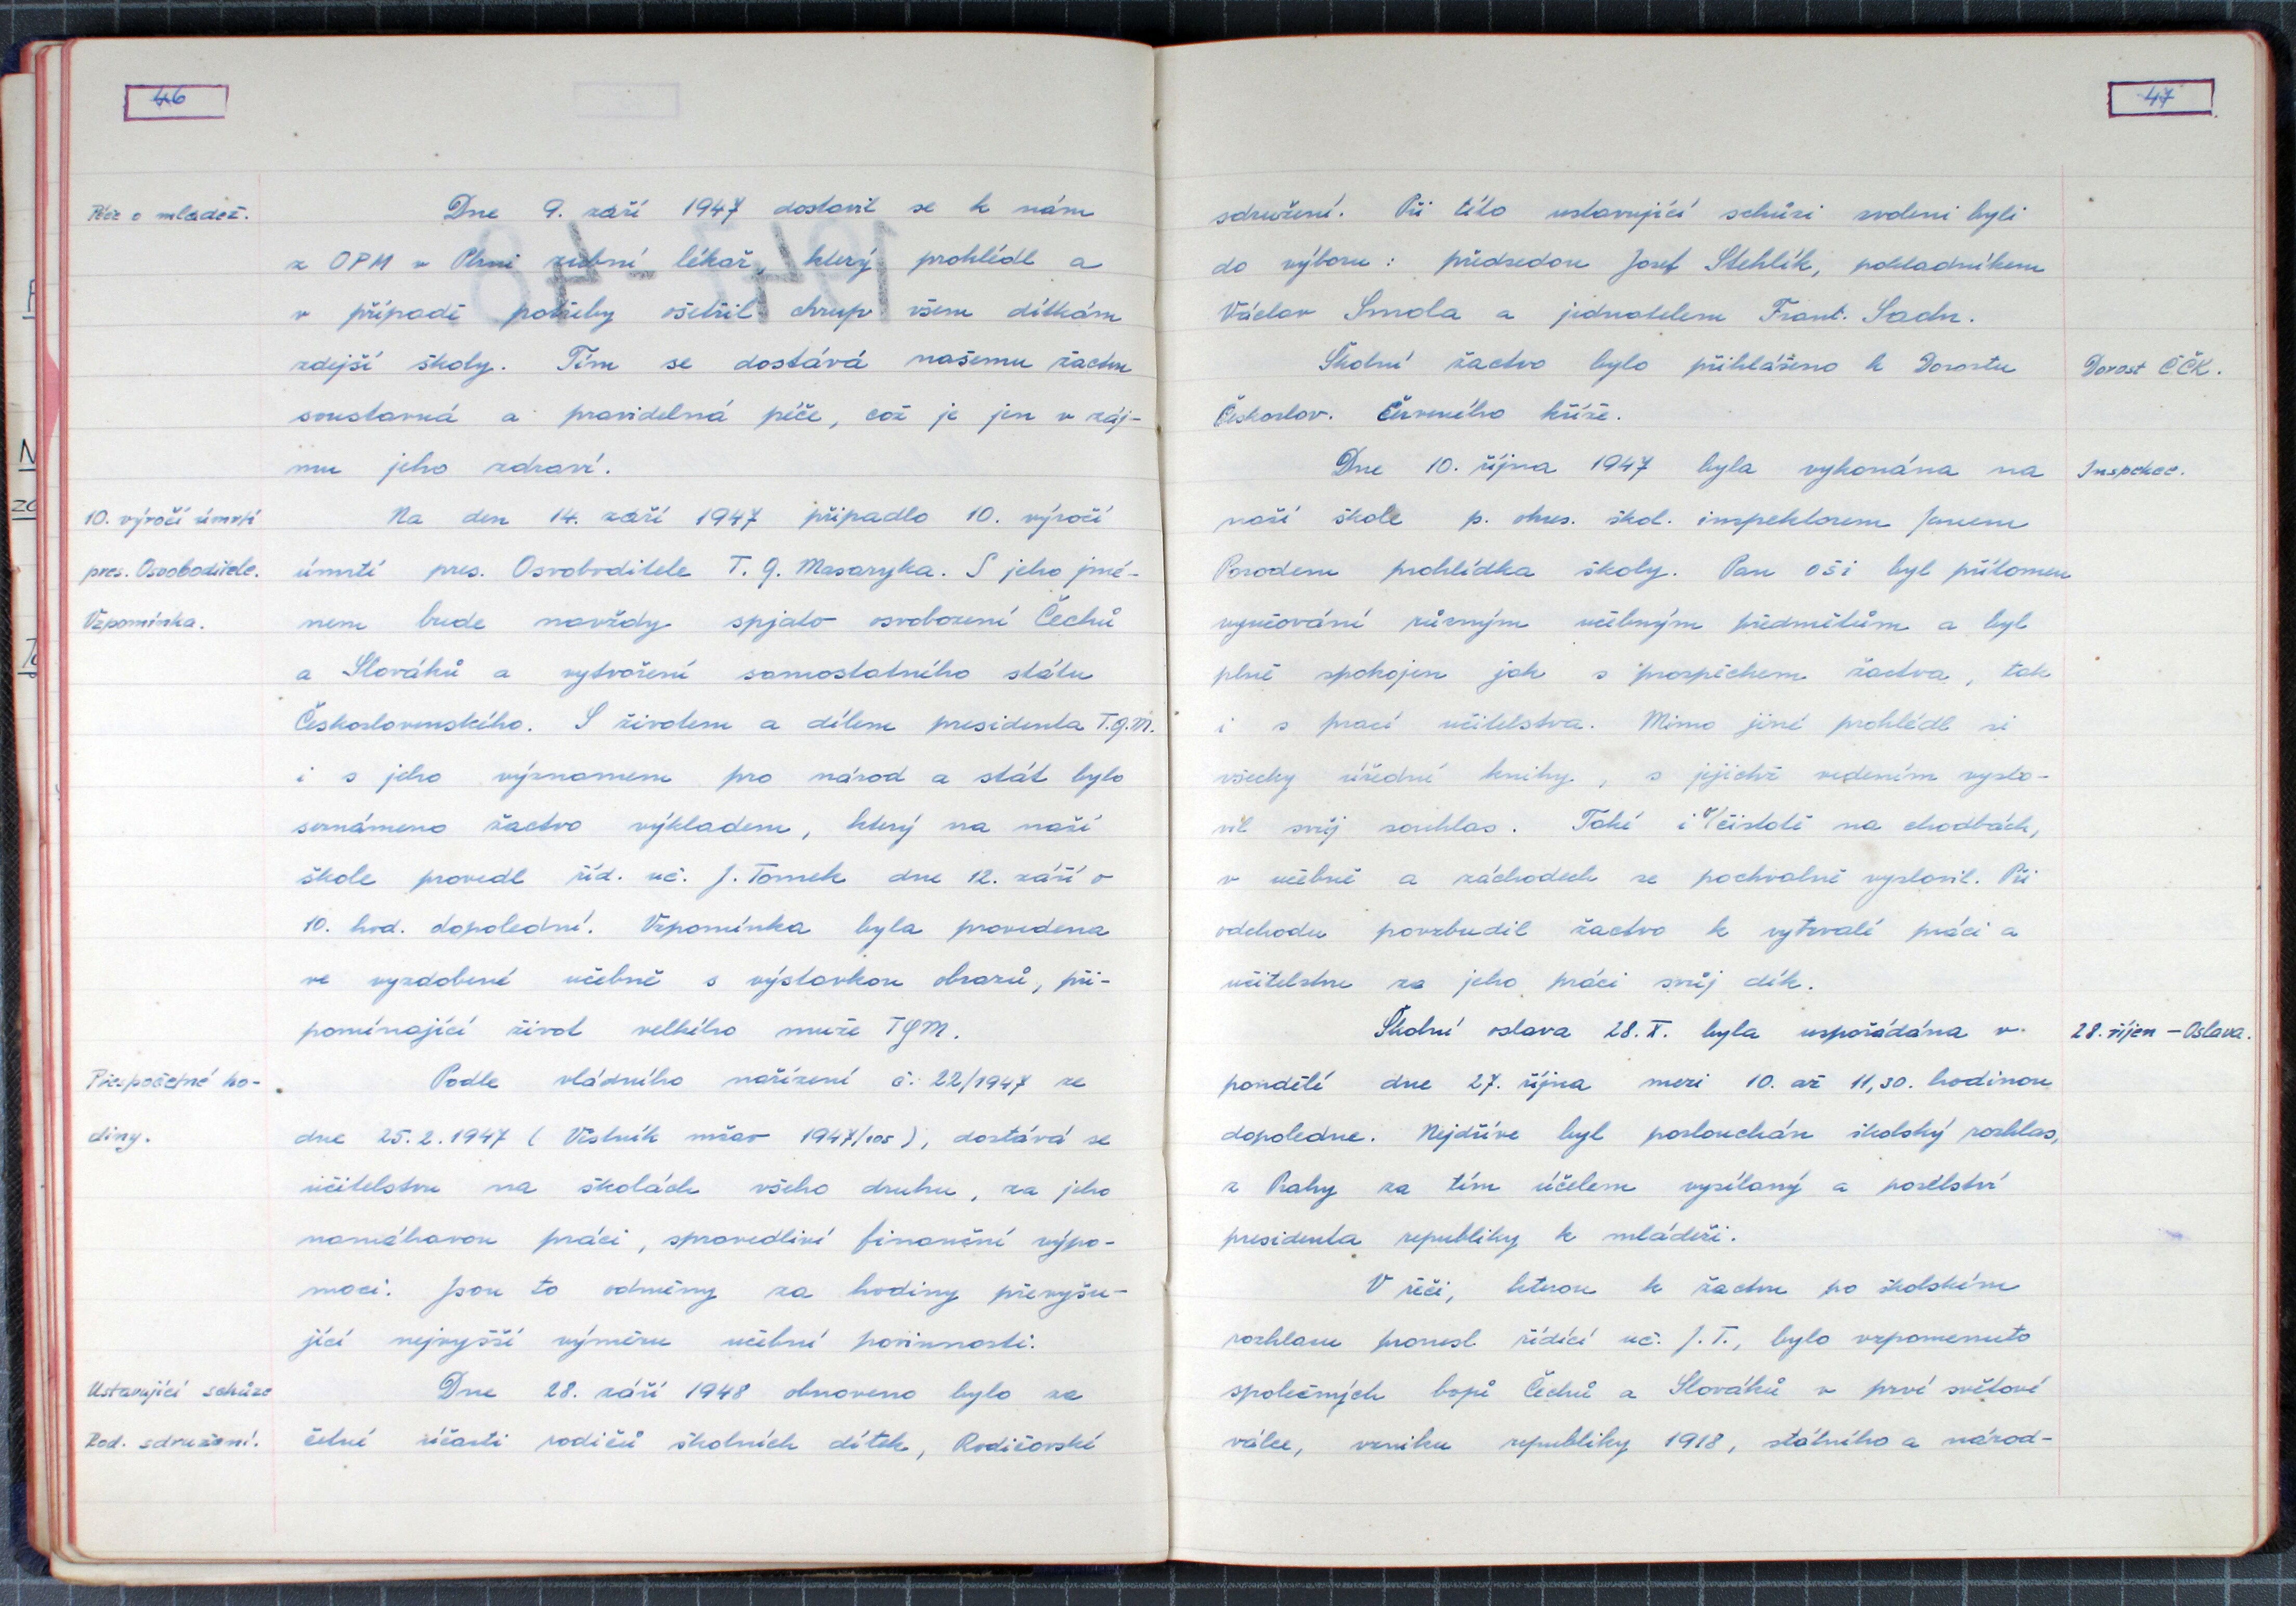 46
Péče o mládež.
Dne 9. září 1947 dostavil se k nám
z OPM v Plzni zubní lékař, který prohlédl a
v případě potřeby ošetřil chrup všem dítkám
zdejší školy. Tím se dostává našemu žactvu
soustavná a pravidelná péče, což je jen v záj-
mu jeho zdraví.
10. výročí úmrtí
pres. Osvoboditele.
Vzpomínka.
Na den 14. září 1947 připadlo 10. výročí
úmrtí pres. Osvoboditele T. G. Masaryka. S jeho jmé-
nem bude navždy spjato osvobození Čechů
a Slováků a vytvoření samostatného státu
Československého. S životem a dílem presidenta T.G.M.
i s jeho významem pro národ a stát bylo
seznámeno žactvo výkladem, který na naší
škole provedl říd. uč. J. Tomek dne 12. září o
10. hod. dopolední. Vzpomínka byla provedena
ve vyzdobené učebně s výstavkou obrazů, při-
pomínající život velkého muže TGM.
Přespočetné ho-
diny.
Podle vládního nařízení č. 22/1947 ze
dne 25.2.1947 (Věstník mšav 1947/105), dostává se
učitelstvu na školách všeho druhu, za jeho
namáhavou práci, spravedlivé finanční výpo-
moci. Jsou to odměny za hodiny převyšu-
jící nejvyšší výměru učební povinnosti.
Ustavující schůze
Rod. sdružení.
Dne 28. září 1948 obnoveno bylo za
četné účasti rodičů školních dítek, Rodičovské
47
sdružení. Při této ustavující schůzi zvoleni byli
do výboru: předsedou Josef Stehlík, pokladníkem
Václav Smola a jednatelem Frant. Sadn.
Dorost ČČK.
Školní žactvo bylo přihlášeno k Dorostu
Českoslov. Červeného kříže.
Inspekce.
Dne 10. října 1947 byla vykonána na
naší škole p. okres. škol. inspektorem Janem
Porodem prohlídka školy. Pan oši byl přítomen
vyučování různým učebným předmětům a byl
plně spokojen jak s prospěchem žactva, tak
i s prací učitelstva. Mimo jiné prohlédl si
všecky úřední knihy, s jejichž vedením vyslo-
vil svůj souhlas. Také i o čistotě na chodbách,
v učebně a záchodech se pochvalně vyslovil. Při
odchodu povzbudil žactvo k vytrvalé práci a
učitelstvu za jeho práci svůj dík.
28. říjen – Oslava.
Školní oslava 28. X. byla uspořádána v
pondělí dne 27. října mezi 10. až 11,30. hodinou
dopoledne. Nejdříve byl poslouchán školský rozhlas,
z Prahy za tím účelem vysílaný a poselství
presidenta republiky k mládeži.
V řeči, kterou k žactvu po školském
rozhlasu pronesl řídící uč. J. T., bylo vzpomenuto
společných bojů Čechů a Slováků v prvé světové
válce, vzniku republiky 1918, státního a národ-